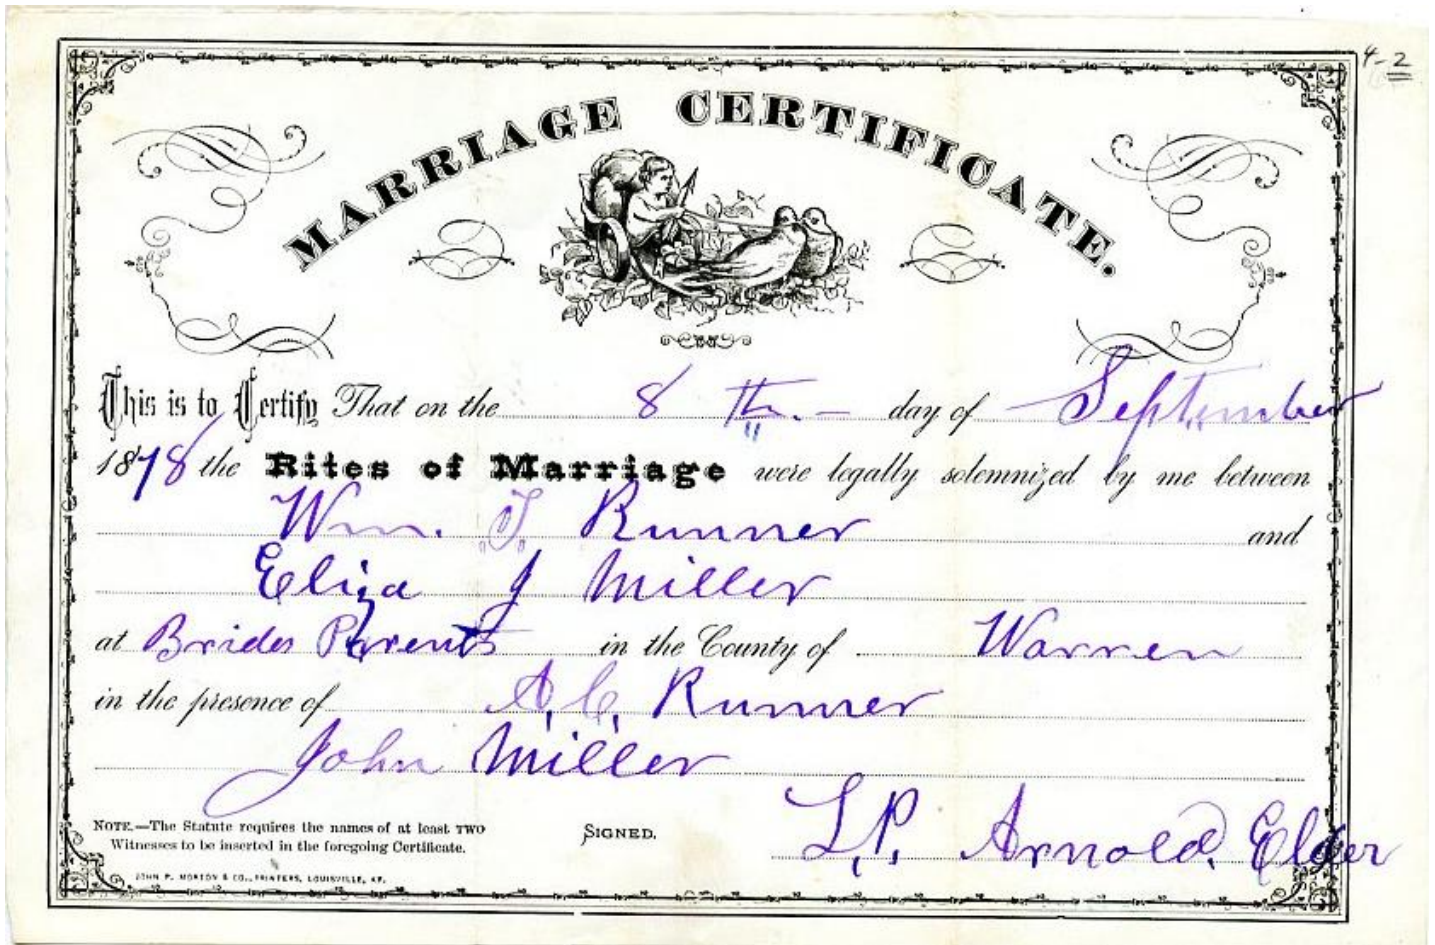 4-2
MARRIAGE CERTIFICATE.
This is to Certify That on the 8 th. - day of September
1878 the Rites of Marriage were legally solemnized by me between
Wm. T. Runner and
Eliza J Miller
at Brides Parents in the County of Warren
in the presence of A. C. Runner
John Miller
NOTE.—The Statute requires the names of at least TWO
Witnesses to be inserted in the foregoing Certificate.
SIGNED.
L. P. Arnold. Elder
JOHN P. MORTON & CO., PRINTERS, LOUISVILLE, KY.